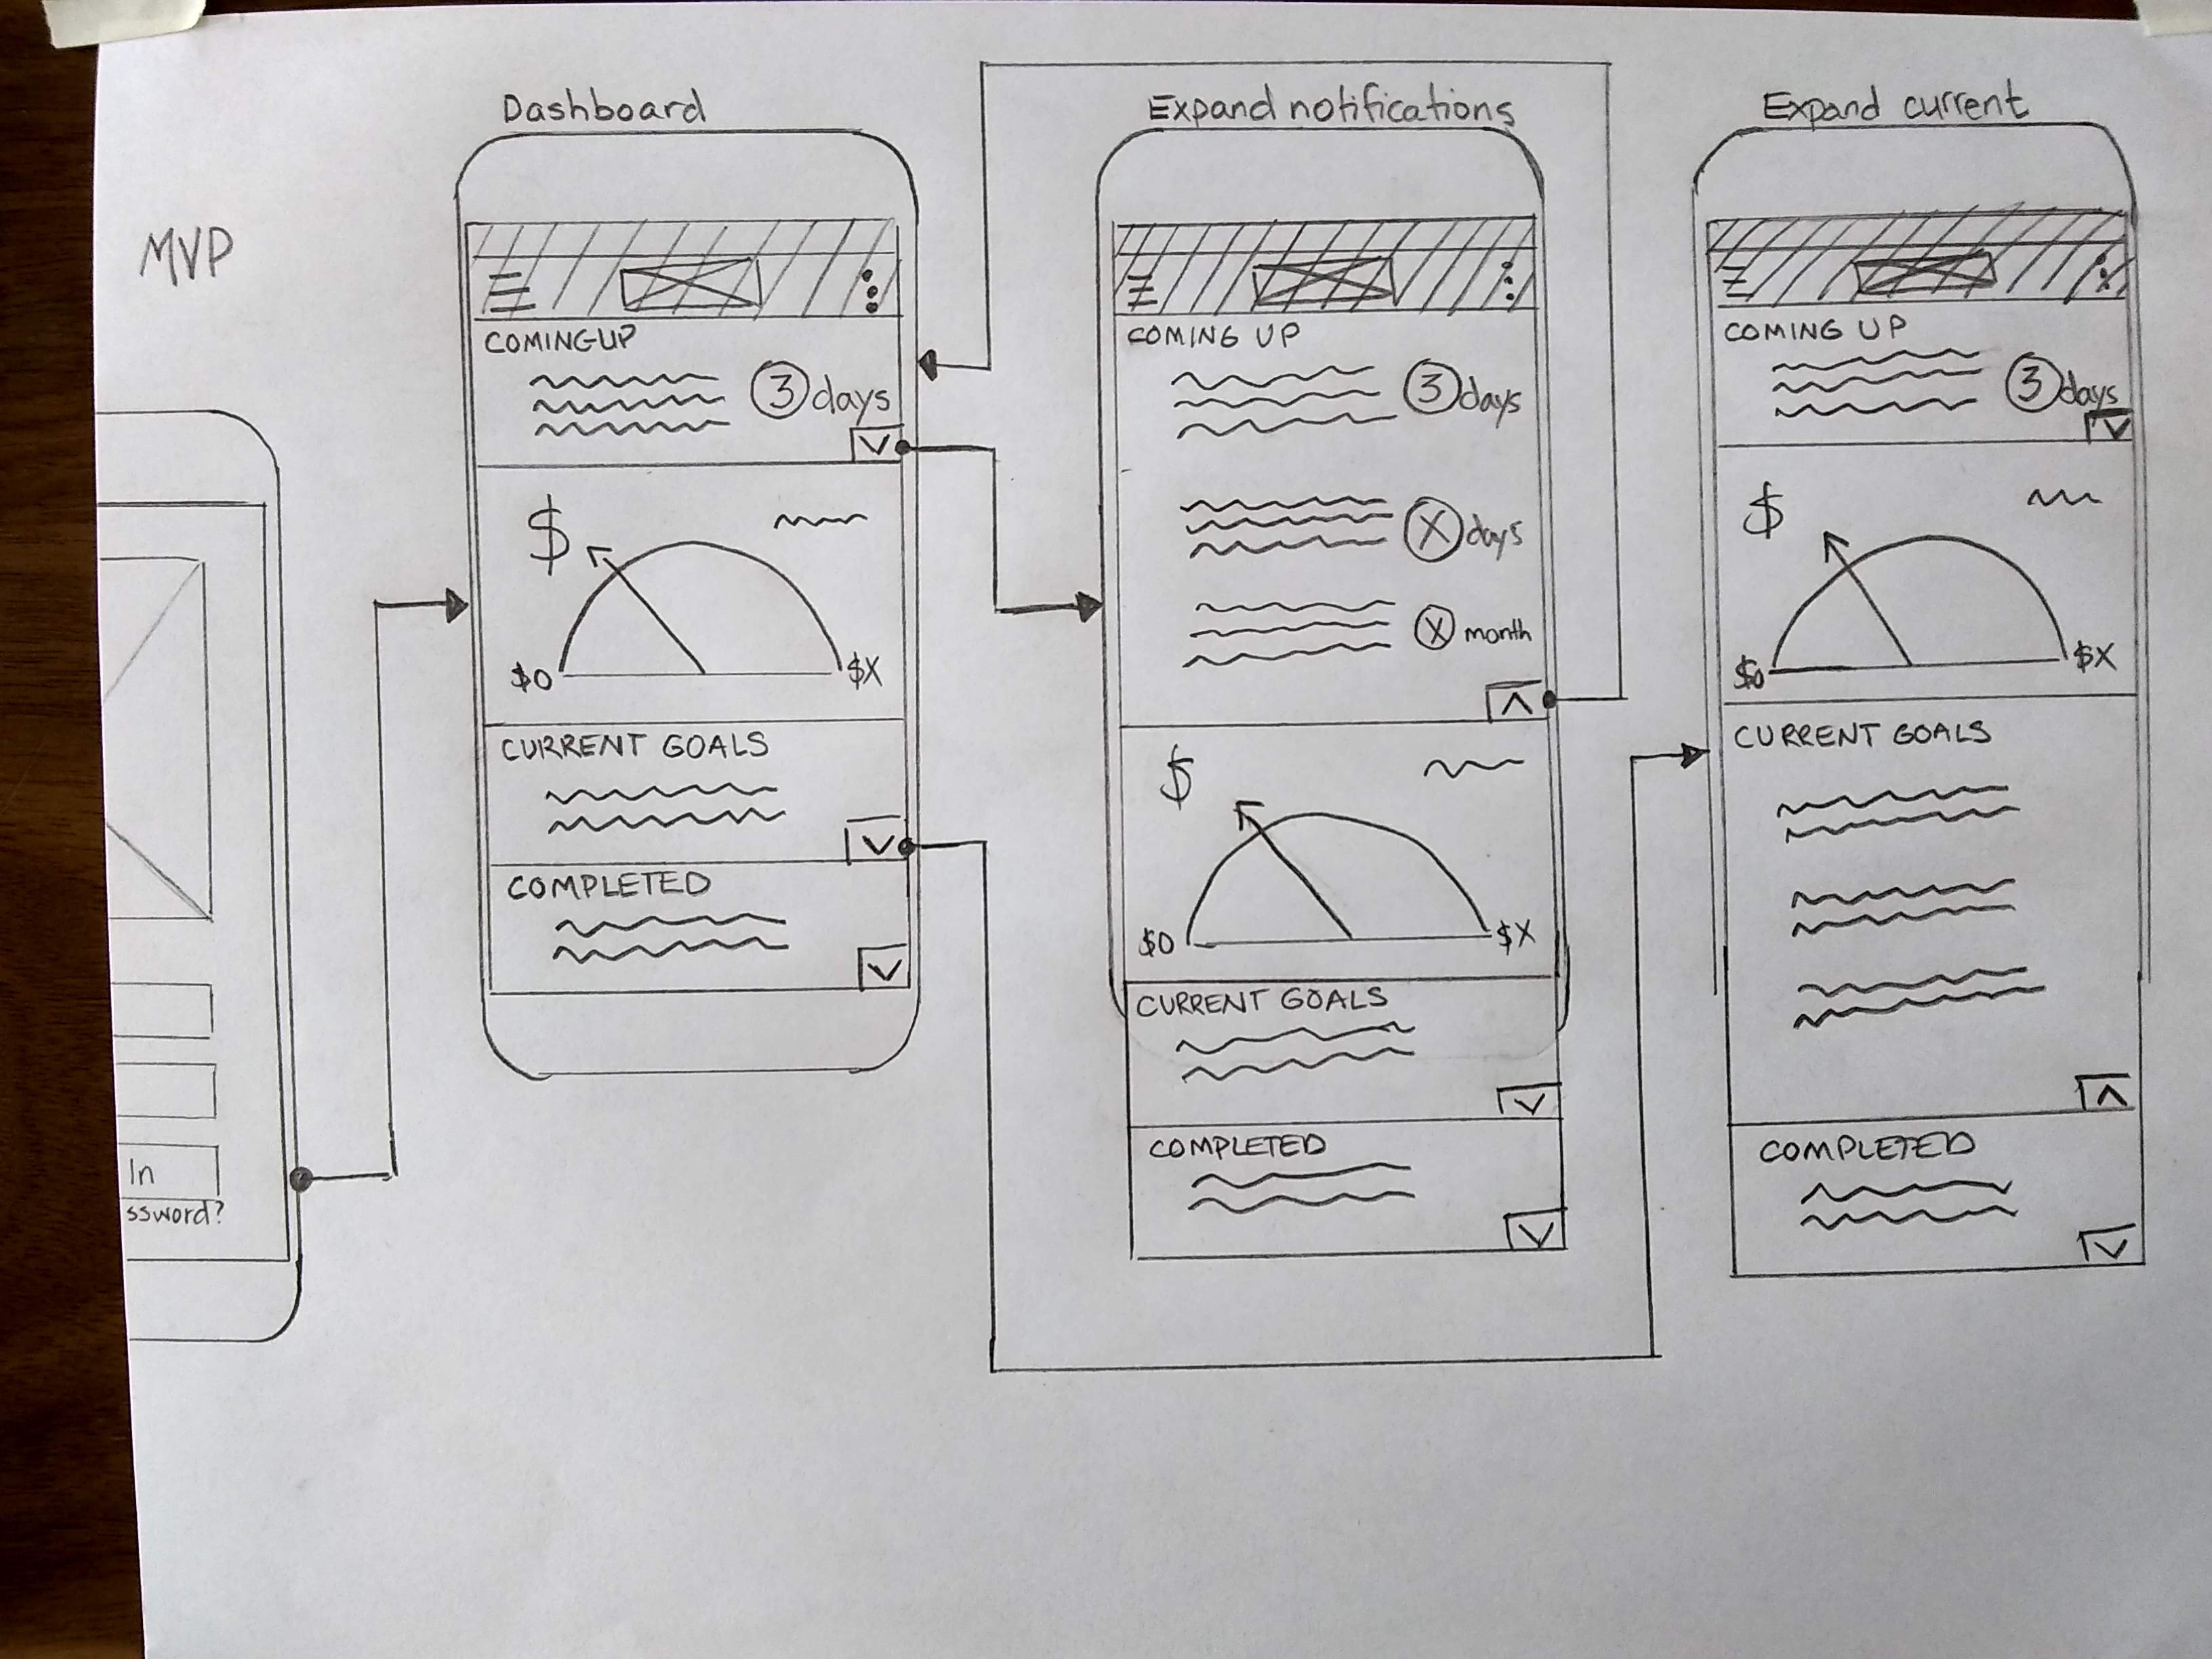 MVP
In
ssword?
Dashboard
COMING UP
3 days
$
$0
$X
CURRENT GOALS
COMPLETED
Expand notifications
COMING UP
3 days
X days
X month
$
$0
$X
CURRENT GOALS
COMPLETED
Expand current
COMING UP
3 days
$
$0
$X
CURRENT GOALS
COMPLETED